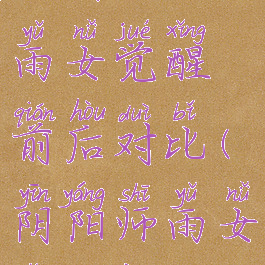 yǔ nǚ jué xǐng
雨女觉醒
qián hòu duì bǐ
前后对比(
yīn yáng shī yǔ nǚ
阴阳师雨女